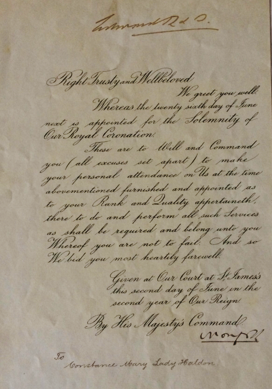 Edward R & I.
Right Trusty and Wellbeloved
We greet you well.
Whereas the twenty sixth day of June
next is appointed for the Solemnity of
Our Royal Coronation
These are to Will and Command
you (all excuses set apart) to make
your personal attendance on Us at the time
abovementioned furnished and appointed as
to your Rank and Quality appertaineth,
there to do and perform all such Services
as shall be required and belong unto you
Whereof you are not to fail. And so
We bid you most heartily farewell.
Given at Our Court at St. James's
this second day of June in the
second year of Our Reign
By His Majesty's Command
To
Constance Mary Lady Haldon